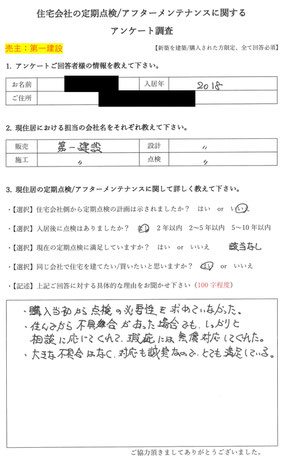 住宅会社の定期点検/アフターメンテナンスに関する
アンケート調査
売主：第一建設
【新築を建築/購入された方限定、全て回答必須】
1. アンケートご回答者様の情報を教えて下さい。
お名前 入居年 2018
ご住所
2. 現住居における担当の会社名をそれぞれ教えて下さい。
販売 第一建設 設計 〃
施工 〃 点検 〃
3. 現住居の定期点検/アフターメンテナンスに関して詳しく教えて下さい。
・【選択】住宅会社側から定期点検の計画は示されましたか？ はい or いいえ
・【選択】入居後に点検はありましたか？ なし 2年以内 2~5年以内 5~10年以内
・【選択】現在の定期点検に満足していますか？ はい or いいえ 該当なし
・【選択】同じ会社で住宅を建てたい/買いたいと思いますか？ はい or いいえ
・【記述】上記ご回答に対する具体的な理由をお聞かせ下さい（100字程度）
・購入当初から点検の必要性を求めていなかった。
・住んでから不具合があった場合でも、しっかりと
相談に応じてくれて、瑕疵には無償対応してくれた。
・大きな不具合はなく、対応も誠実なので、とても満足している。
ご協力頂きましてありがとうございました。